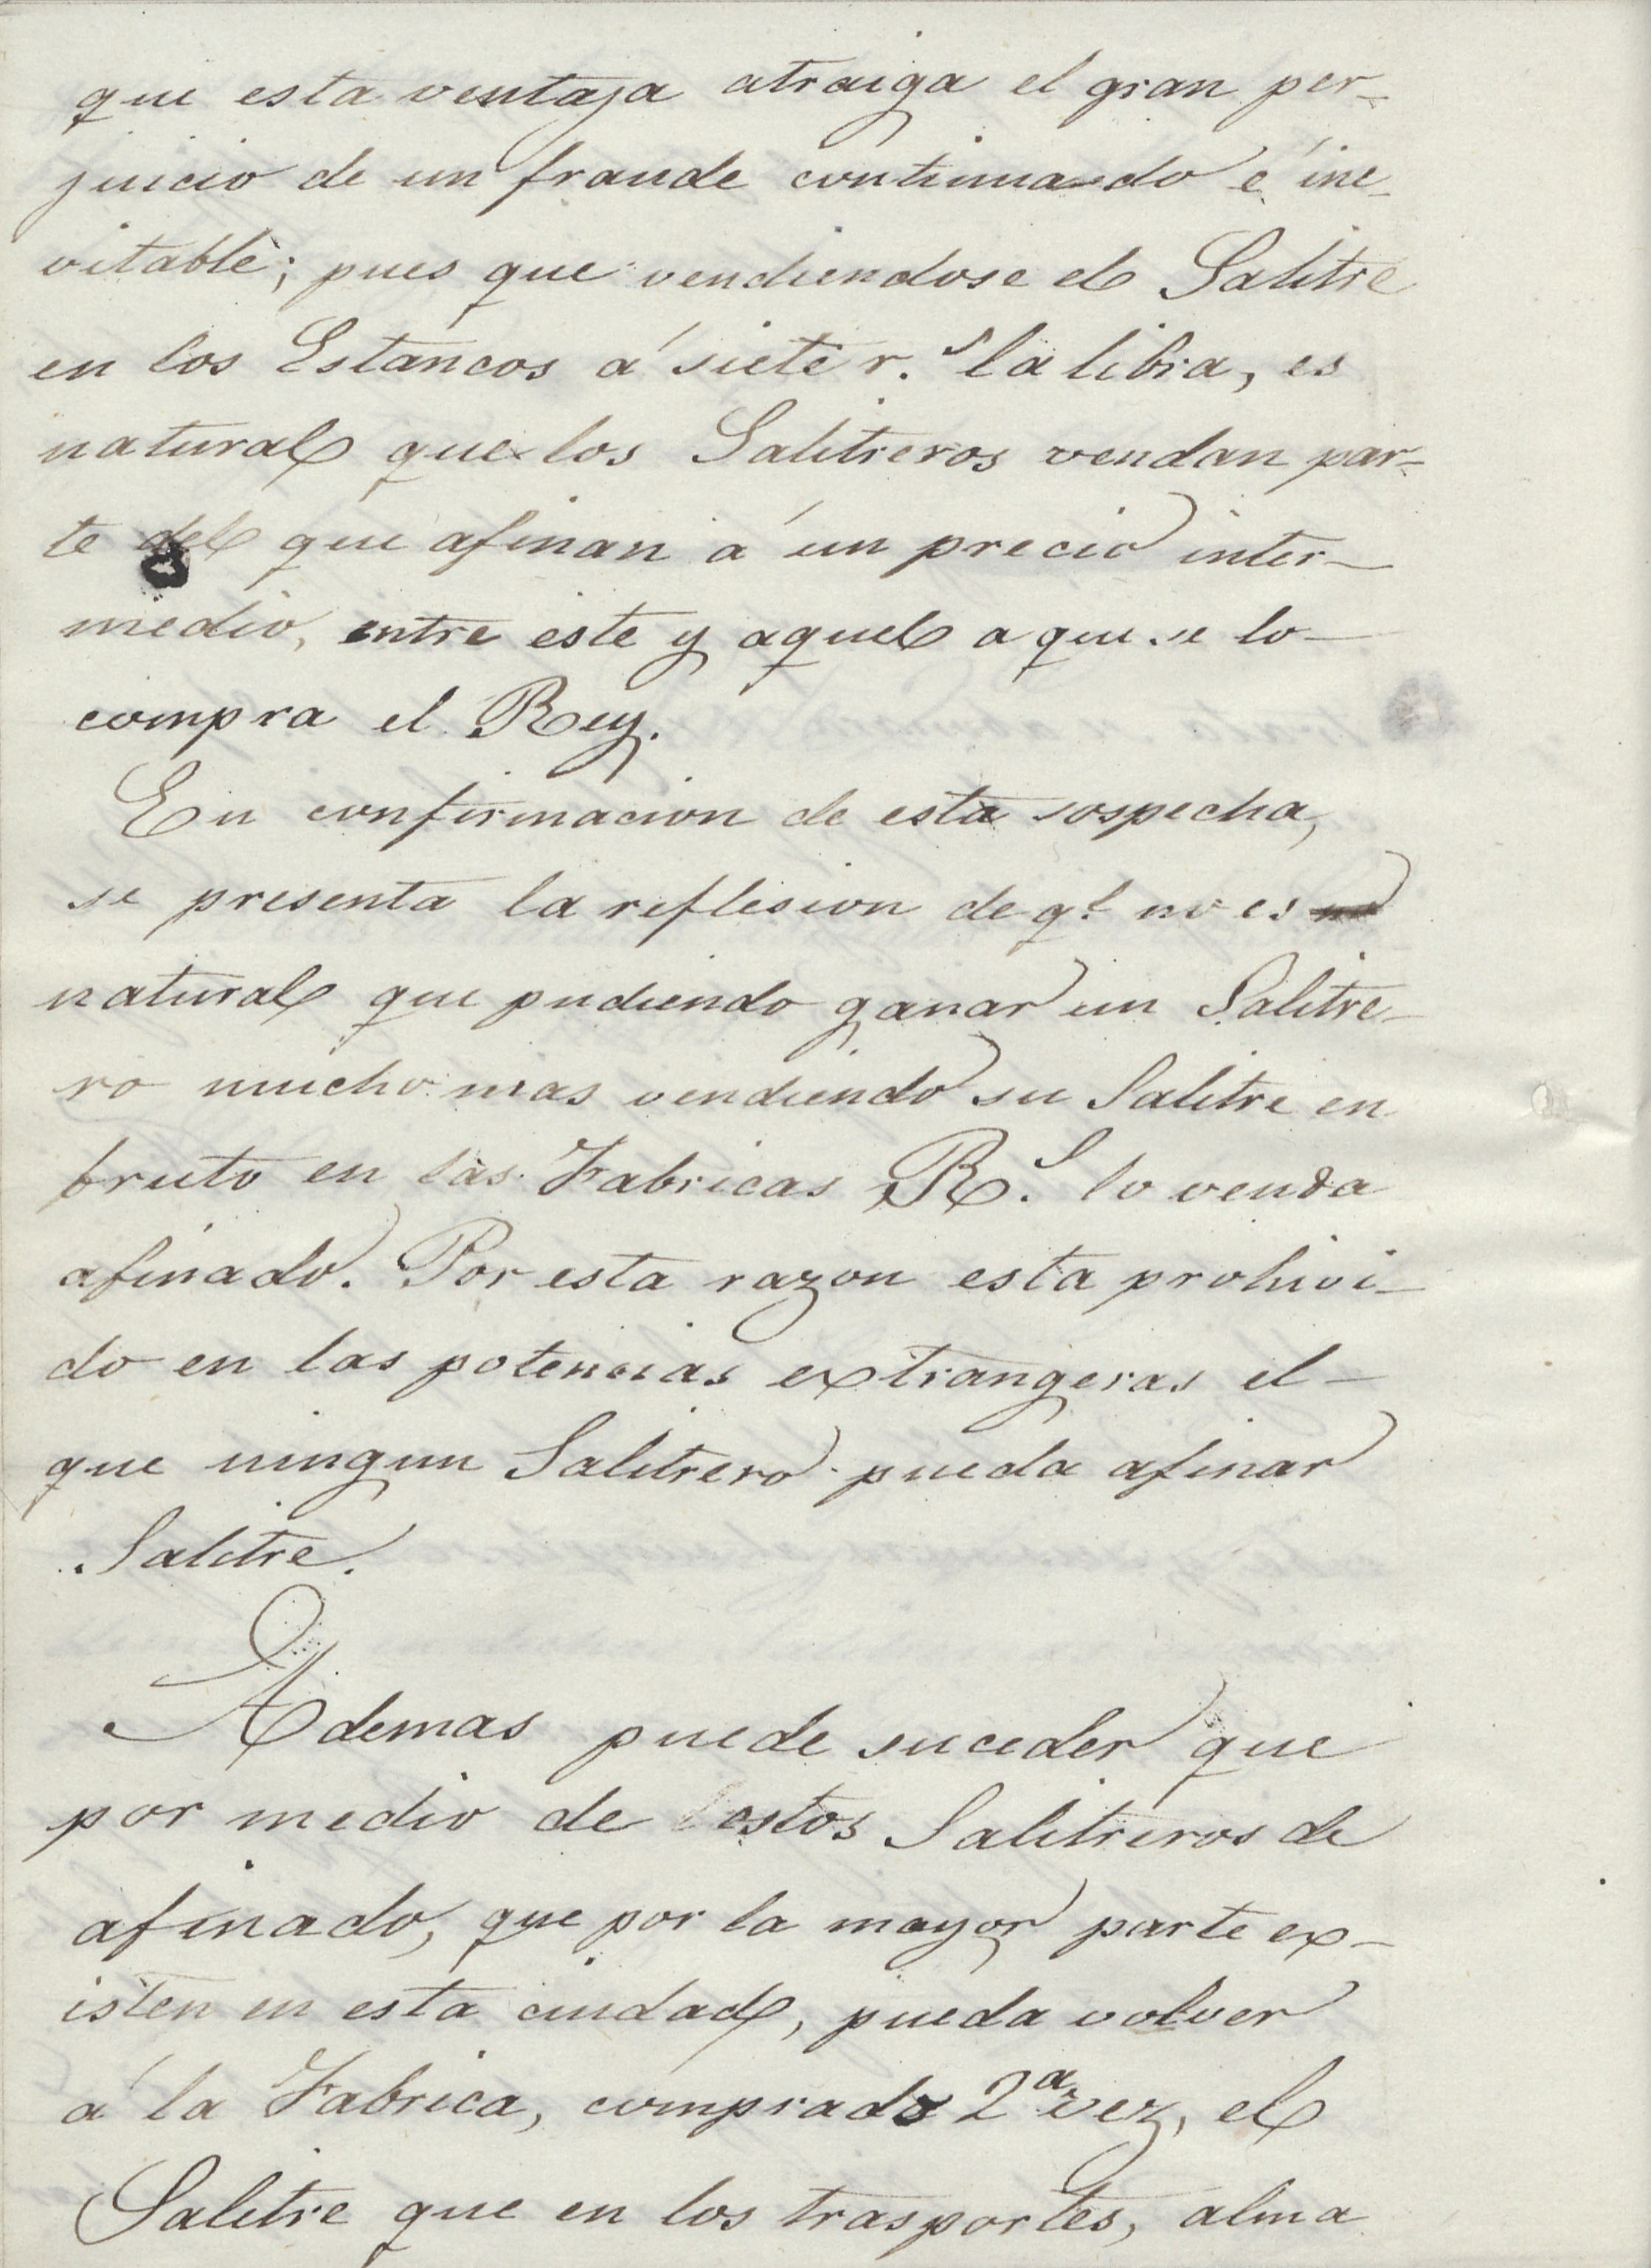 que esta ventaja atraiga el gran per-
juicio de un fraude continuado é ine-
vitable; pues que vendiendose el Salitre
en los Estancos á siete r.s la libra, es
natural que los Salitreros vendan par-
te del que afinan á un precio inter-
medio, entre este y aquel a que se lo
compra el Rey.
En confirmacion de esta sospecha,
se presenta la reflesion de q.e no es
natural que pudiendo ganar un Salitre-
ro mucho mas vendiendo su Salitre en
bruto en las Fabricas R.s lo venda
afinado. Por esta razon esta prohivi-
do en las potencias extrangeras el
que ningun Salitrero pueda afinar
Salitre.
Ademas puede suceder que
por medio de estos Salitreros de
afinado, que por la mayor parte ex-
isten en esta ciudad, pueda volver
á la Fabrica, comprado 2.a vez, el
Salitre que en los trasportes, alma